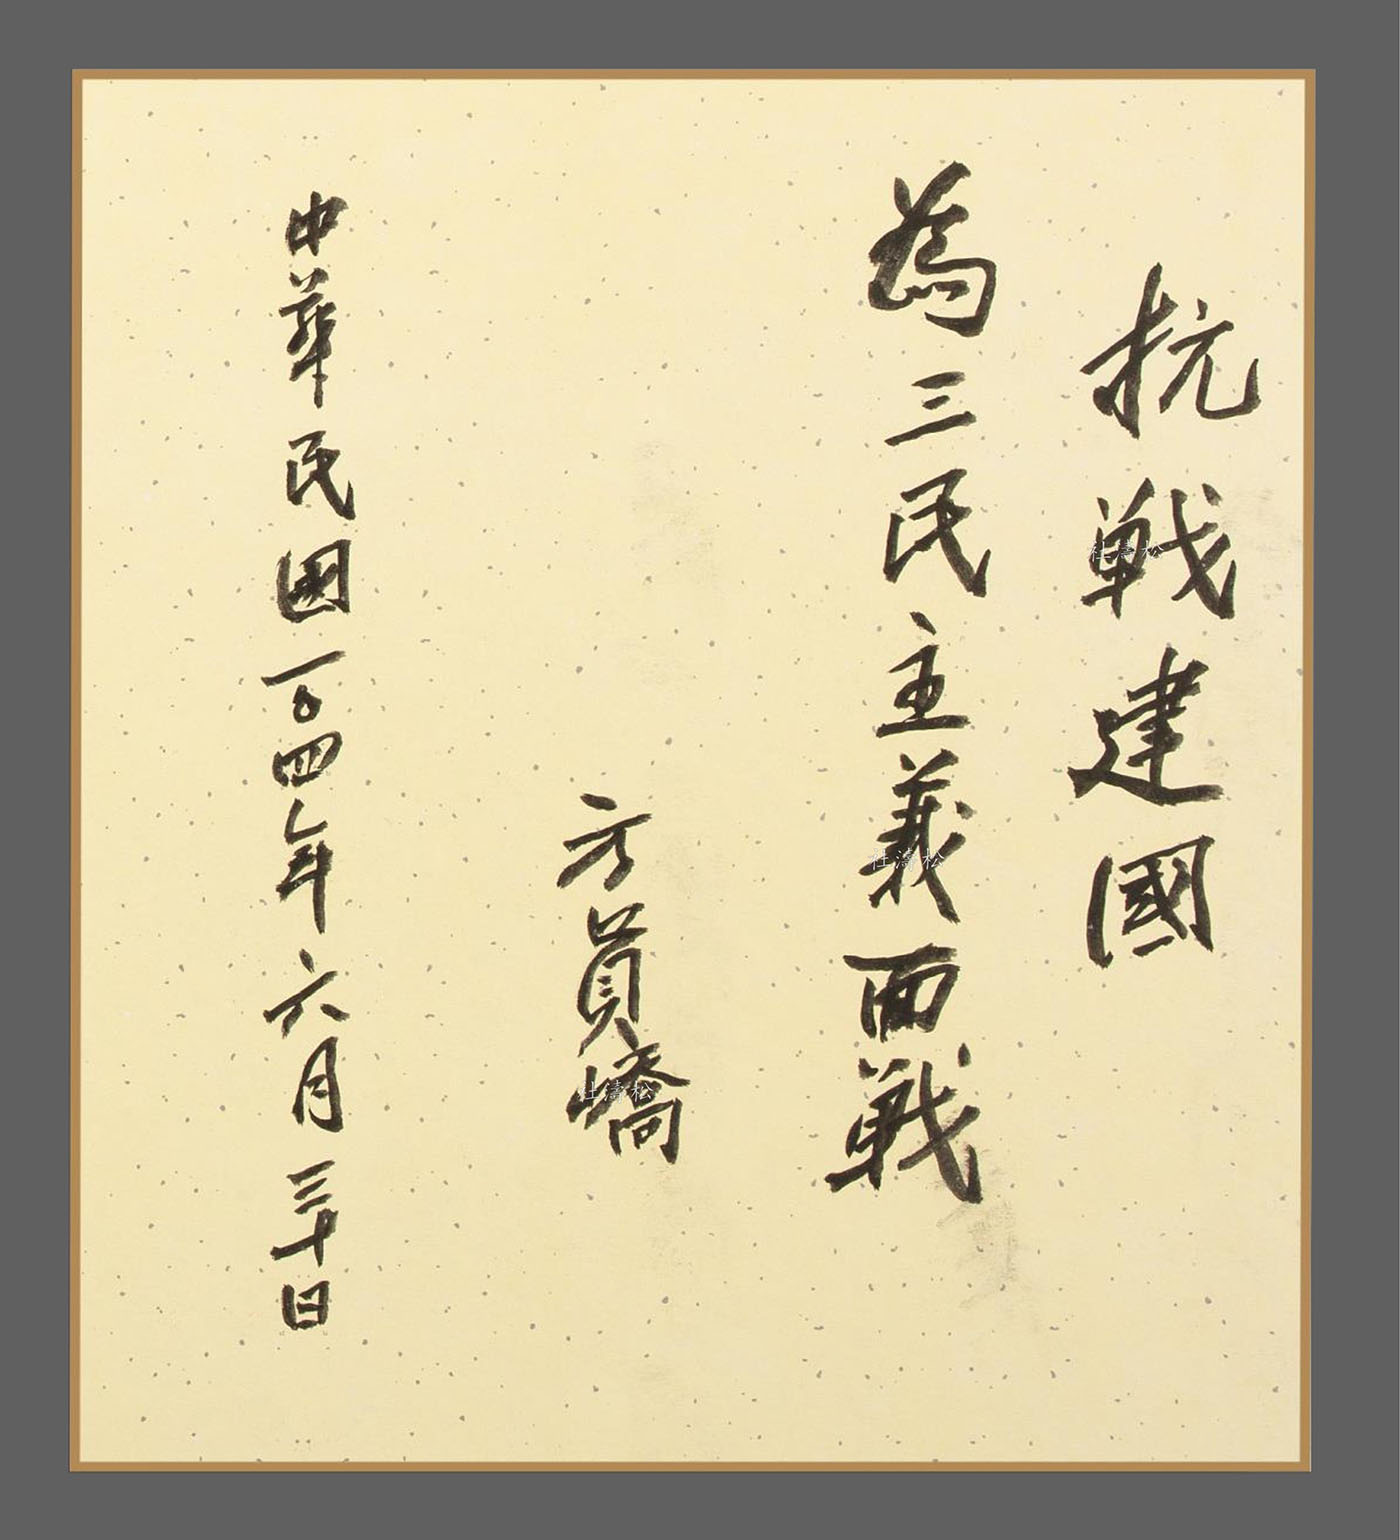 抗戦建國
為三民主義而戦
方員嶠
中華民國一〇四年六月三十日
杜濤松
杜濤松
杜濤松